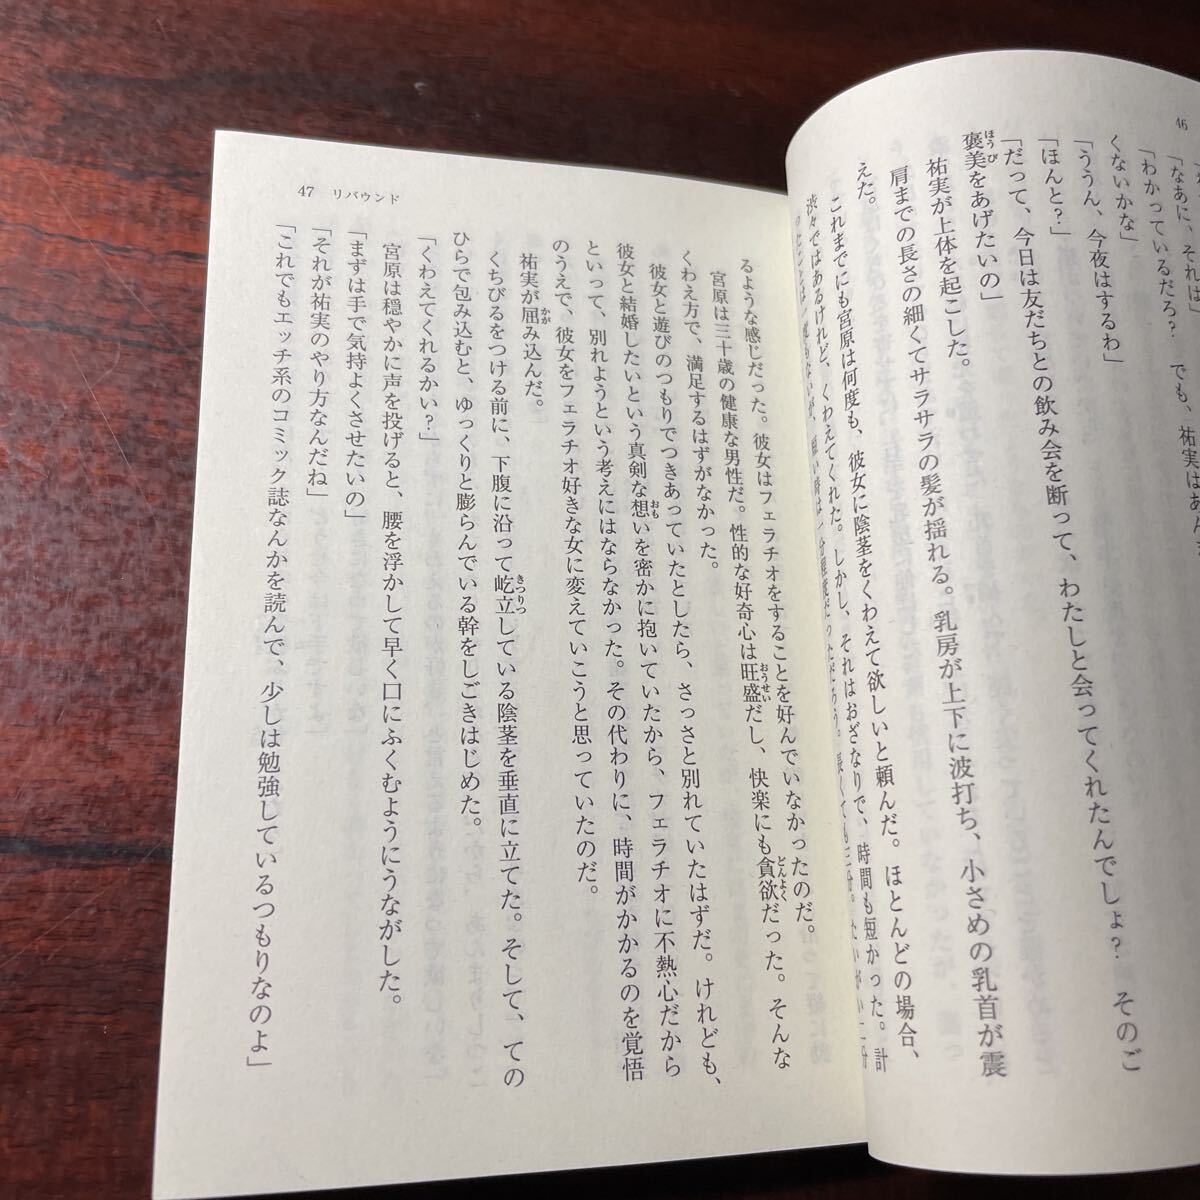 46
「なあに、それは」
「わかっているだろ？　でも、祐実はあ
くないかな」
「ううん、今夜はするわ」
「ほんと？」
「だって、今日は友だちとの飲み会を断って、わたしと会ってくれたんでしょ？　そのご
褒美をあげたいの」
祐実が上体を起こした。
肩までの長さの細くてサラサラの髪が揺れる。乳房が上下に波打ち、小さめの乳首が震
えた。
これまでにも宮原は何度も、彼女に陰茎をくわえて欲しいと頼んだ。ほとんどの場合、
渋々ではあるけれど、くわえてくれた。しかし、それはおざなりで、時間も短かった。計
ったことは一度もないが、短い時は一分程度だっただろう。長くても三分。たいがい二分
47　リバウンド
るような感じだった。彼女はフェラチオをすることを好んでいなかったのだ。
宮原は三十歳の健康な男性だ。性的な好奇心は旺盛だし、快楽にも貪欲だった。そんな
くわえ方で、満足するはずがなかった。
彼女と遊びのつもりでつきあっていたとしたら、さっさと別れていたはずだ。けれども、
彼女と結婚したいという真剣な想いを密かに抱いていたから、フェラチオに不熱心だから
といって、別れようという考えにはならなかった。その代わりに、時間がかかるのを覚悟
のうえで、彼女をフェラチオ好きな女に変えていこうと思っていたのだ。
祐実が屈み込んだ。
くちびるをつける前に、下腹に沿って屹立している陰茎を垂直に立てた。そして、ての
ひらで包み込むと、ゆっくりと膨らんでいる幹をしごきはじめた。
「くわえてくれるかい？」
宮原は穏やかに声を投げると、腰を浮かして早く口にふくむようにうながした。
「まずは手で気持よくさせたいの」
「それが祐実のやり方なんだね」
「これでもエッチ系のコミック誌なんかを読んで、少しは勉強しているつもりなのよ」